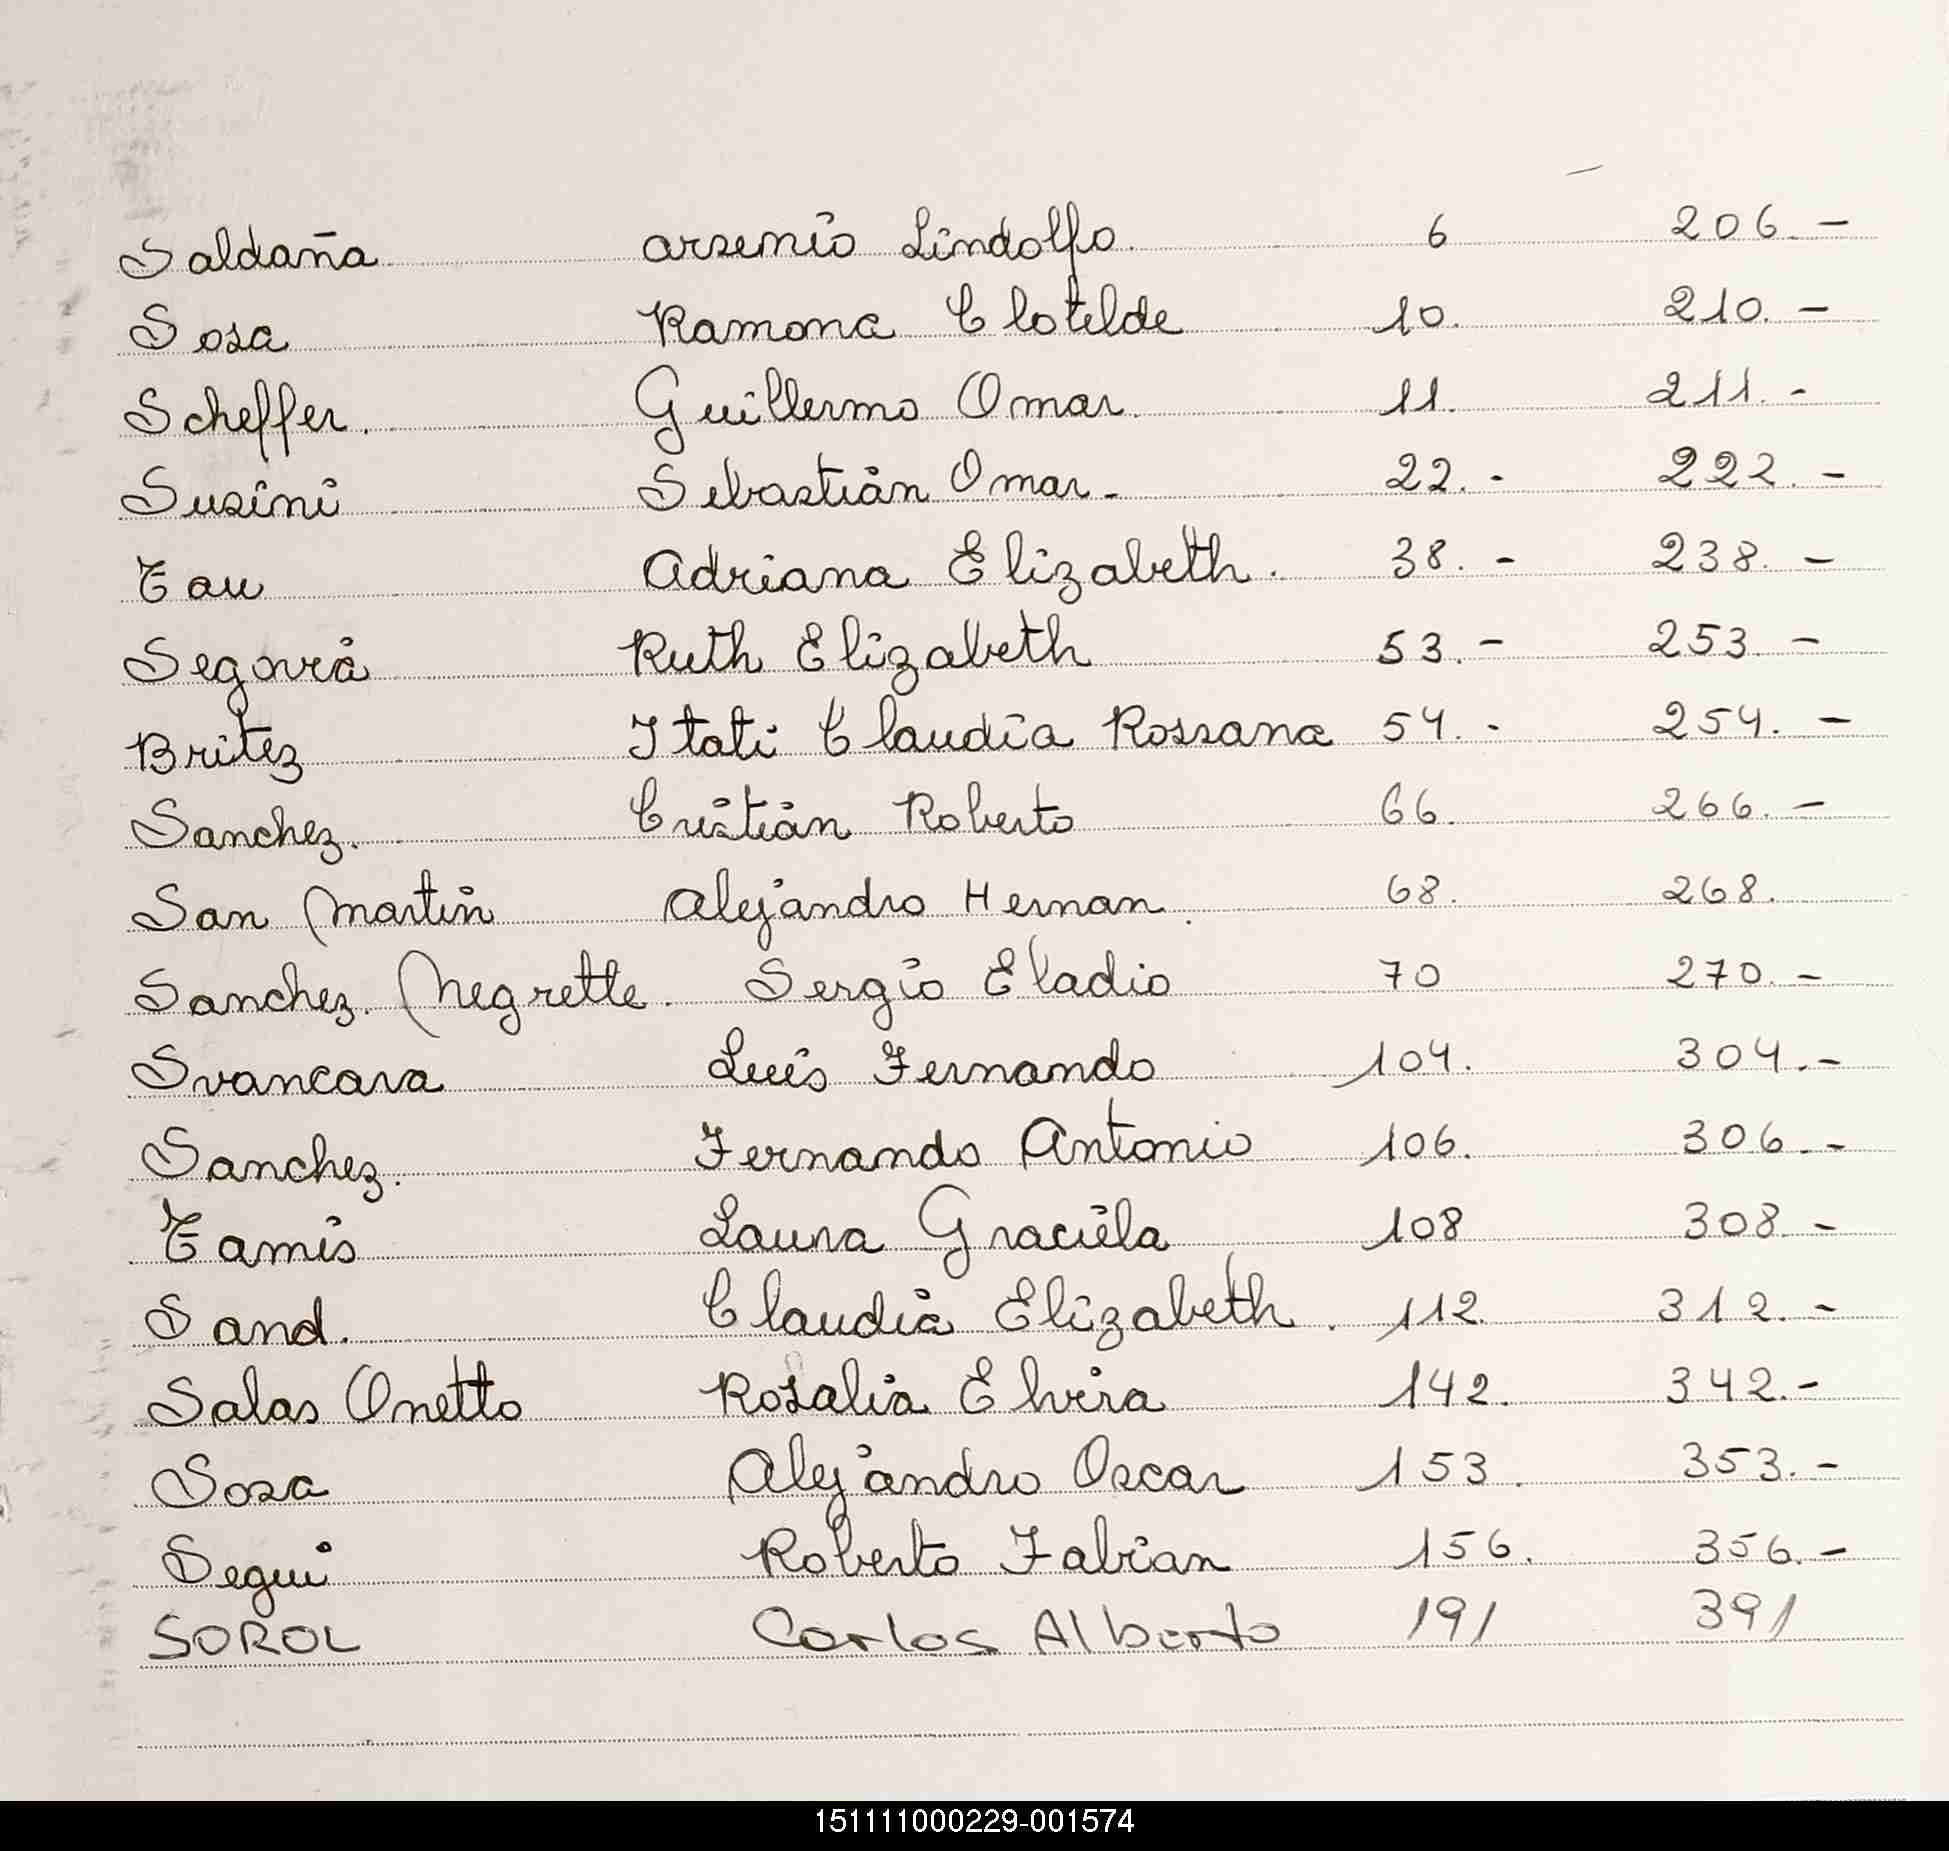 Saldaña Arsenio Lindolfo. 6 206.-
Sosa Ramona Clotilde 10. 210.-
Scheffer. Guillermo Omar. 11. 211.-
Susini Sebastián Omar- 22.- 222.-
Tau Adriana Elizabeth. 38.- 238.-
Segovia Ruth Elizabeth 53.- 253.-
Britez Itati Claudia Rossana 54.- 254.-
Sanchez. Cristián Roberto 66. 266.-
San Martin Alejandro Hernan. 68. 268.
Sanchez. Negrette. Sergio Eladio 70 270.-
Svancara Luis Fernando 104. 304.-
Sanchez. Fernando Antonio 106. 306.-
Tamis Laura Graciela 108 308.-
Sand. Claudia Elizabeth. 112. 312.-
Salas Onetto Rosalia Elvira 142. 342.-
Sosa Alejandro Oscar 153. 353.-
Segui Roberto Fabian 156. 356.-
SOROL Carlos Alberto 191 391
151111000229-001574